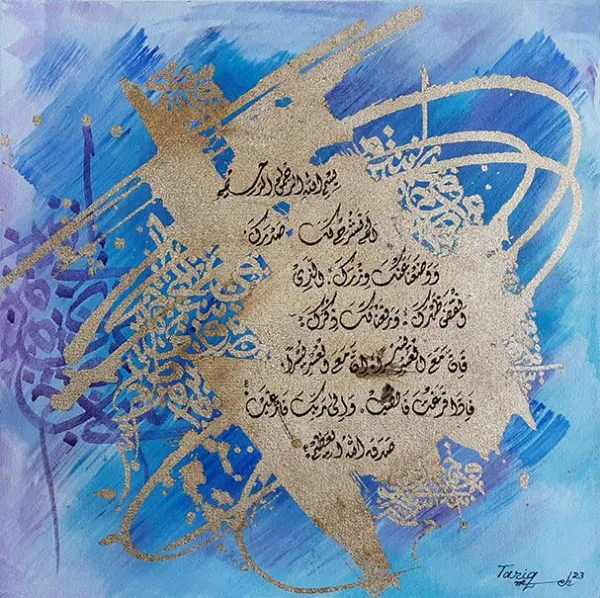 بسم الله الرحمن الرحيم
ألم نشرح لك صدرك
ووضعنا عنك وزرك الذي
أنقض ظهرك ورفعنا لك ذكرك
فإن مع العسر يسرا إن مع العسر يسرا
فإذا فرغت فانصب وإلى ربك فارغب
صدق الله العظيم
Tariq
23